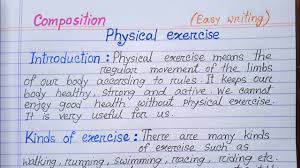 Composition (Easy writing)
Physical exercise
Introduction : Physical exercise means the
regular movement of the limbs
of our body according to rules. It keeps our
body healthy, strong and active. We cannot
enjoy good health without physical exercise.
It is very useful for us.
Kinds of exercise : There are many kinds
of exercise such as
walking, running, swimming, racing, riding etc.